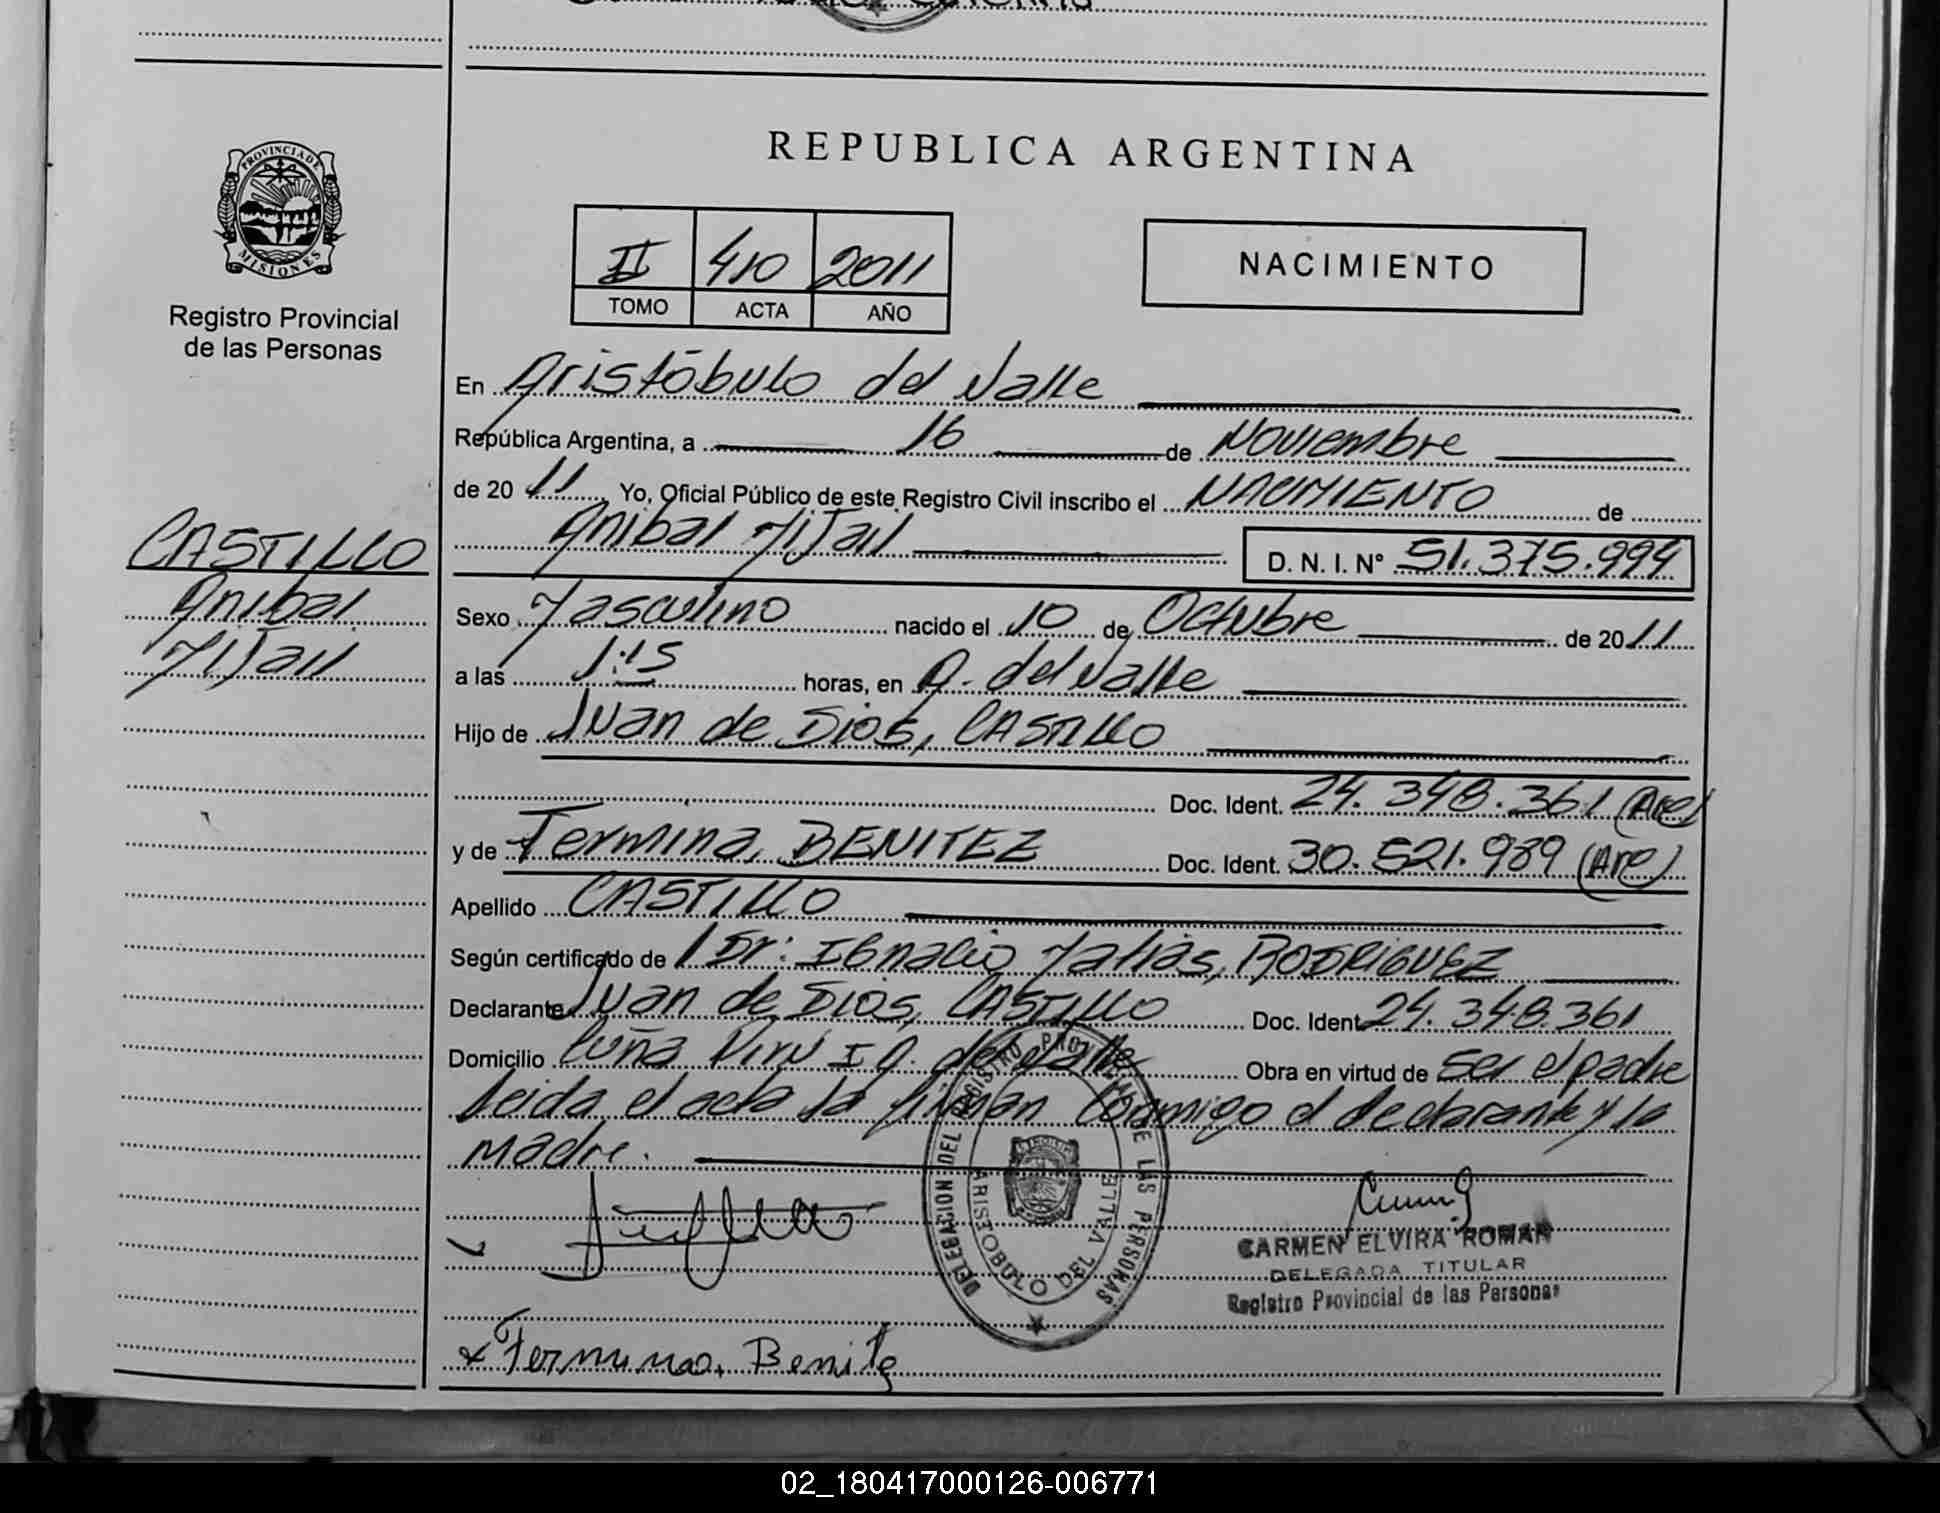 PROVINCIA DE
MISIONES
Registro Provincial
de las Personas
CASTILLO
Anibal
Mijail
REPUBLICA ARGENTINA
II 410 2011
TOMO ACTA AÑO
NACIMIENTO
En Aristóbulo del Valle
República Argentina, a 16 de Noviembre
de 20 11 Yo, Oficial Público de este Registro Civil inscribo el NACIMIENTO de
Anibal Mijail D. N. I. N° 51.375.994
Sexo Masculino nacido el 10 de Octubre de 20 11
a las 1:15 horas, en A. del Valle
Hijo de Juan de Dios, CASTILLO
Doc. Ident. 24.348.361 (Are)
y de Fermina, BENITEZ Doc. Ident. 30.521.989 (Are)
Apellido CASTILLO
Según certificado de Dr: Ignacio Matias, RODRIGUEZ
Declarante Juan de Dios, CASTILLO Doc. Ident. 24.348.361
Domicilio Cuña Pirú I A. del Valle Obra en virtud de ser el padre
Leida el acta la firman conmigo el declarante y la
madre.
DELEGACION DEL REGISTRO PROVINCIAL DE LAS PERSONAS
ARISTOBULO DEL VALLE
CARMEN ELVIRA ROMAN
DELEGADA TITULAR
Registro Provincial de las Personas
Fermina. Benitez
02_180417000126-006771